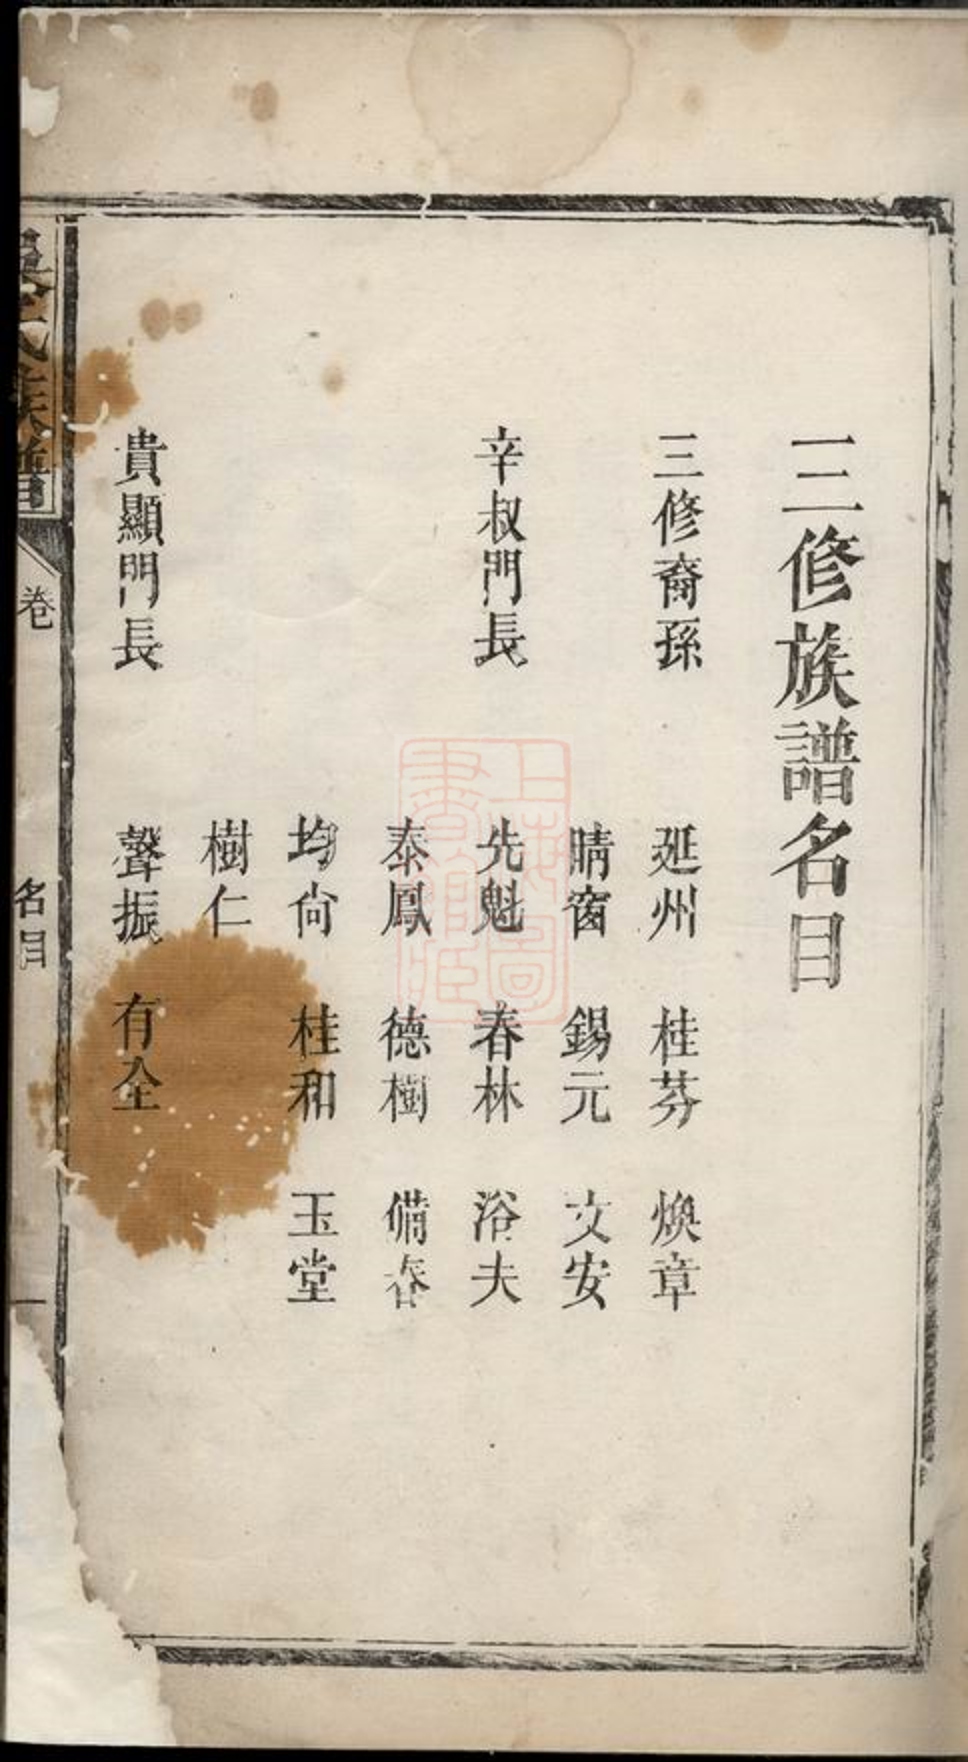 三修族譜名目
三修裔孫 延州 桂芬 煥章
晴窗 錫元 文安
辛叔門長 先魁 春林 浴夫
泰鳳 德樹 備春
均尙 桂和 玉堂
樹仁
貴顯門長 聲振 有全
吳氏族譜 卷 名目 一
上海圖書館藏